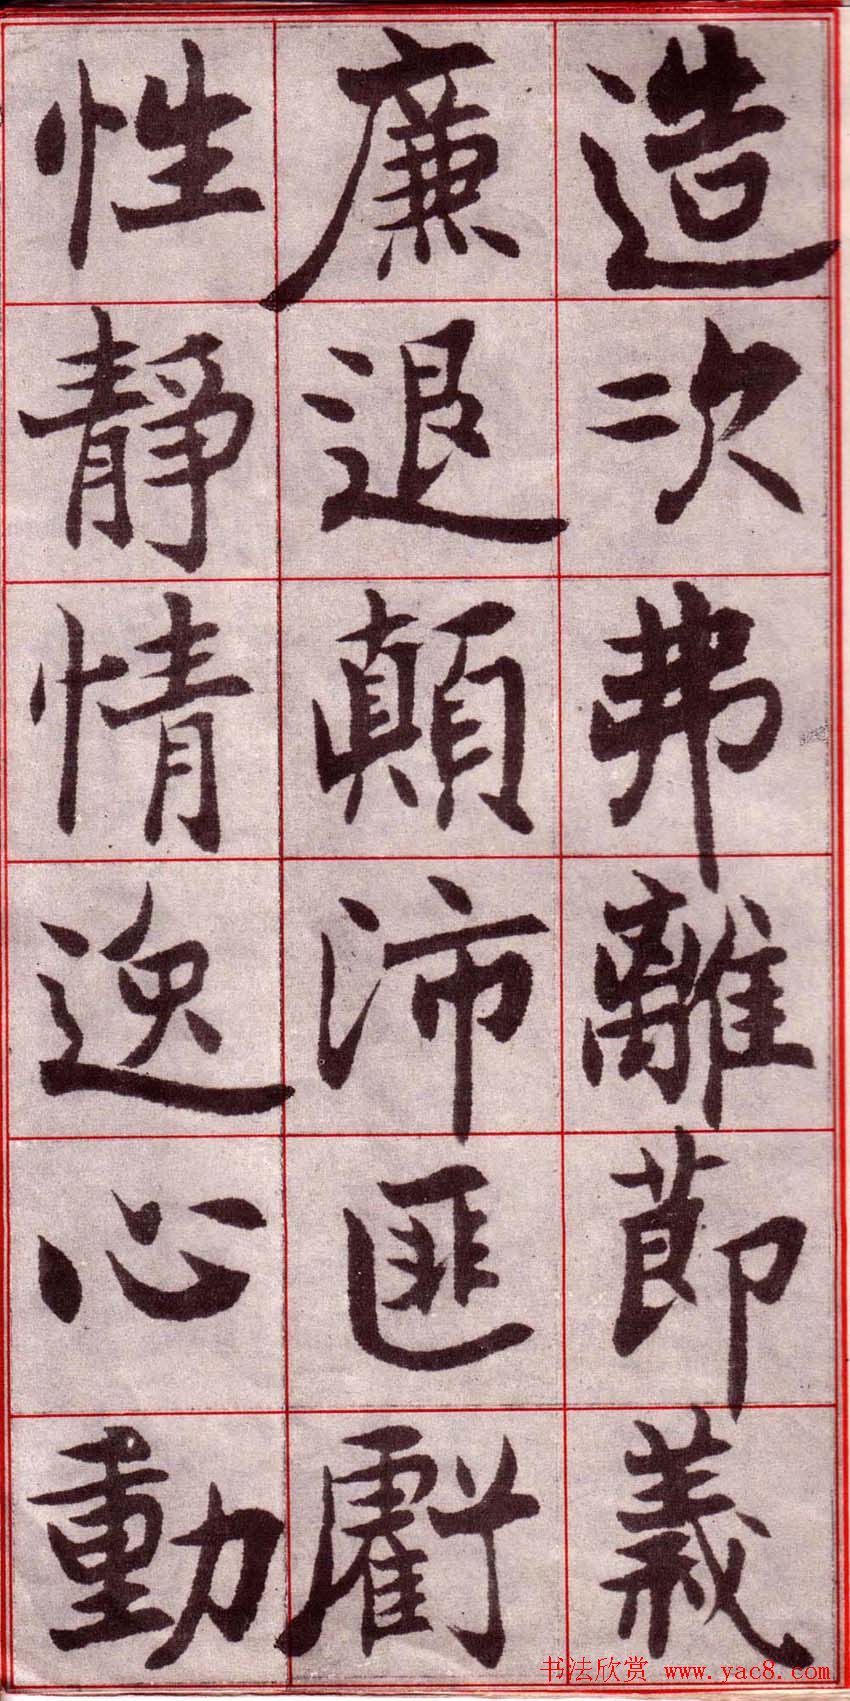 造次弗離節義
廉退顛沛匪虧
性靜情逸心動
书法欣赏 www.yac8.com